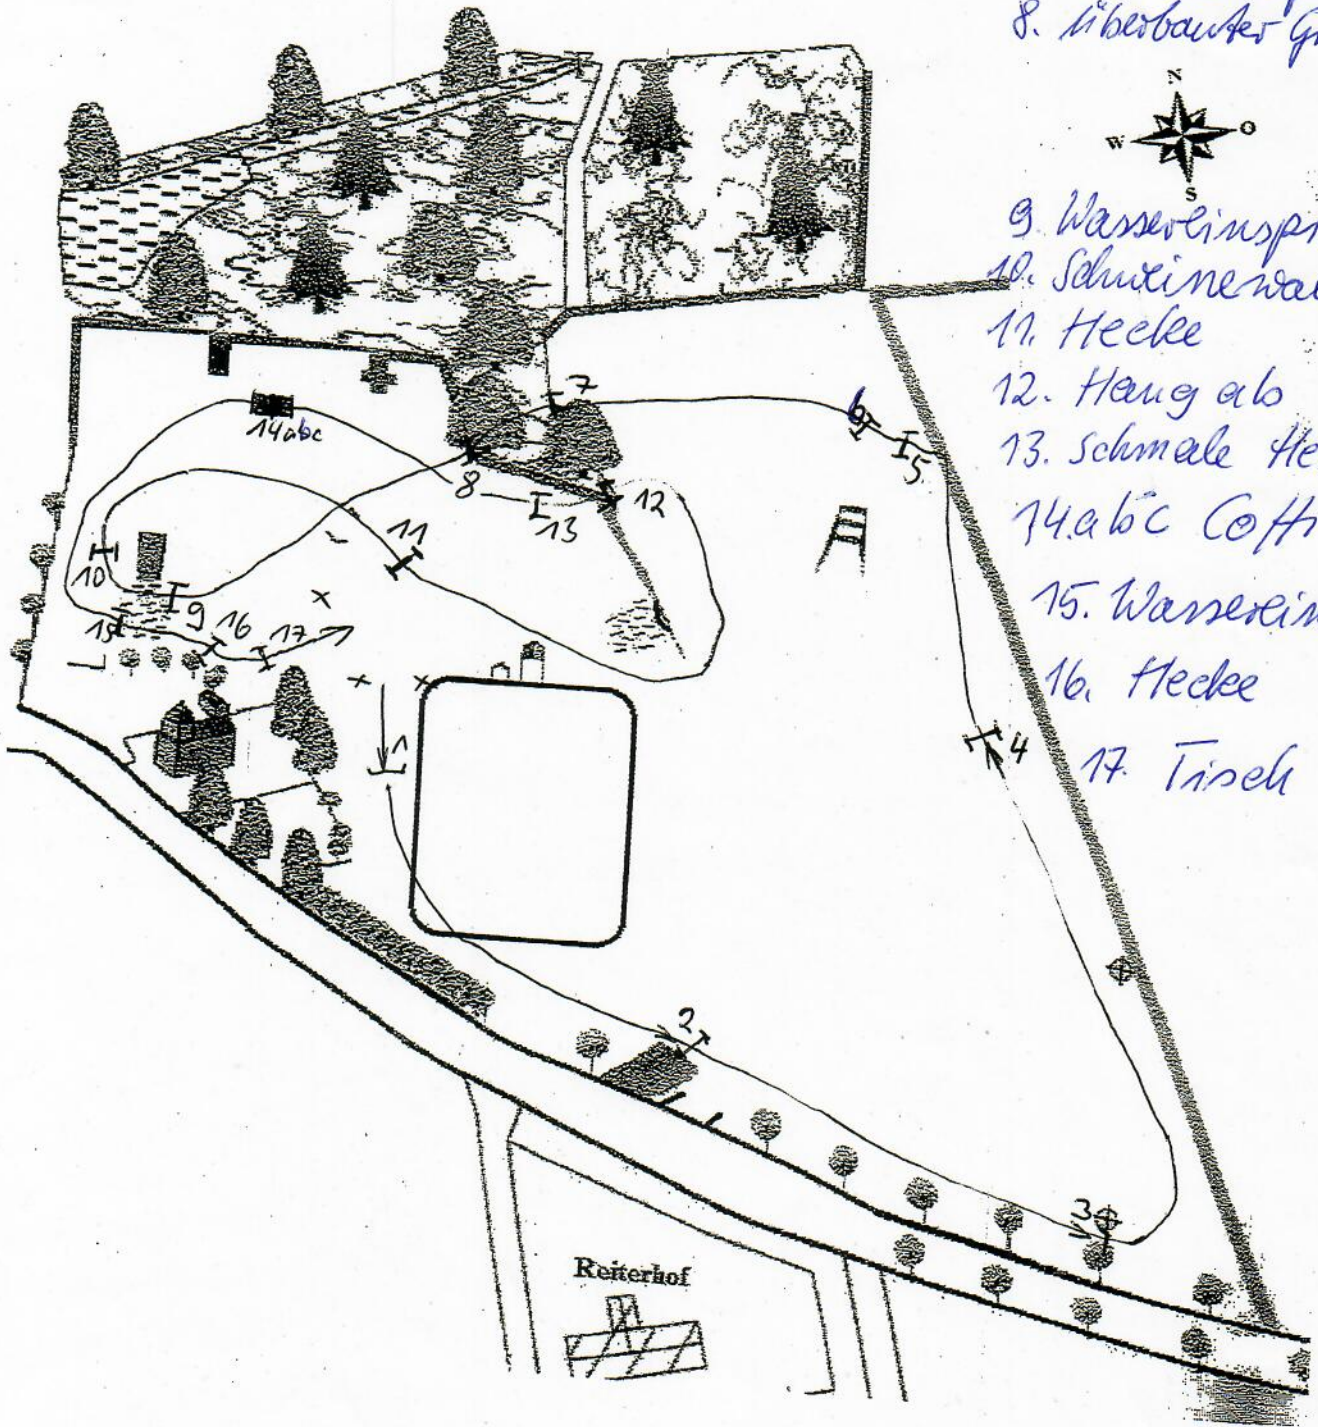 8. Überbauter Gr
N
W
O
S
9. Wassereinspr
10. Schweinewa
11. Hecke
12. Hang ab
13. Schmale He
14.abc Coffi
15. Wasserein
16. Hecke
17. Tisch
7
6
5
14abc
8
12
13
11
10
9
15
16
17
1
4
2
3
Reiterhof